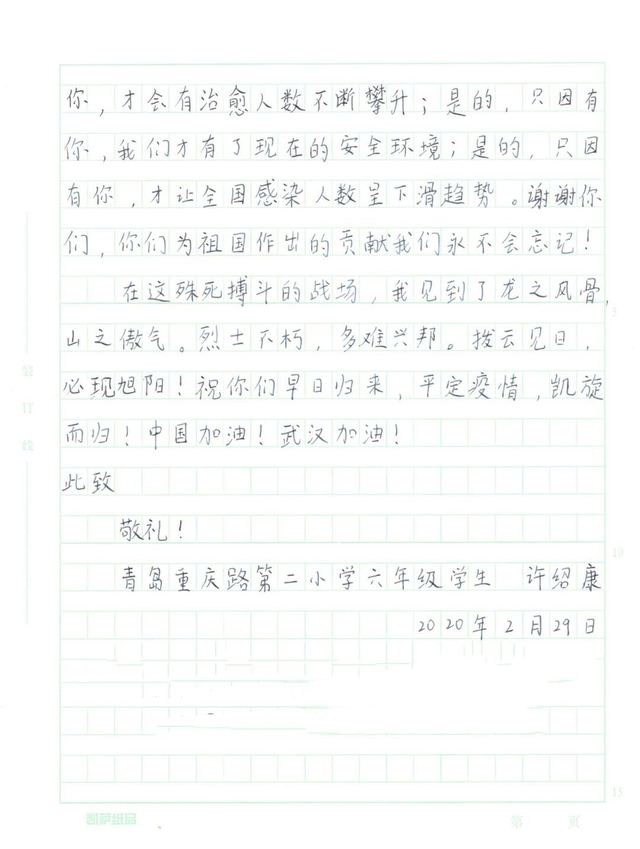 你，才会有治愈人数不断攀升；是的，只因有
你，我们才有了现在的安全环境；是的，只因
有你，才让全国感染人数呈下滑趋势。谢谢你
们，你们为祖国作出的贡献我们永不会忘记！
在这殊死搏斗的战场，我见到了龙之风骨，
山之傲气。烈士不朽，多难兴邦。拨云见日，
必现旭阳！祝你们早日归来，平定疫情，凯旋
而归！中国加油！武汉加油！
此致
敬礼！
青岛重庆路第二小学六年级学生 许绍康
2020年2月29日
装订线
5
10
15
第 页